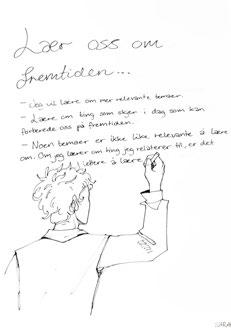 Lær oss om
fremtiden...
- Jeg vil lære om mer relevante temaer.
- Lære om ting som skjer i dag som kan
forberede oss på fremtiden.
- Noen temaer er ikke like relevante å lære
om. Om jeg lærer om ting jeg relaterer til, er det
lettere å lære
SARA